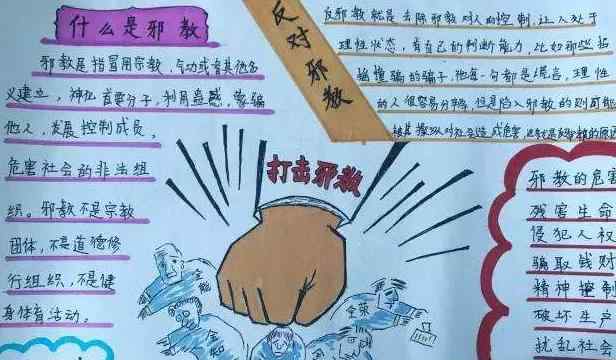 什么是邪教
邪教是指冒用宗教、气功或者其他名
义建立，神化首要分子，利用蛊惑，蒙骗
他人，发展控制成员，
危害社会的非法组
织。邪教不是宗教
团体，不是道德修
行组织，不是健
身体育活动。
反对邪教
反邪教就是去除邪教对人的控制，让人处于
理性状态，有自己的判断能力，比如那些招
摇撞骗的骗子，他每一句都是谎言，理性
的人很容易分辨，但是陷入邪教的则可能
被其操纵对社会造成危害，
打击邪教
邪教的危害
残害生命
侵犯人权
骗取钱财
精神控制
破坏生产
扰乱社会